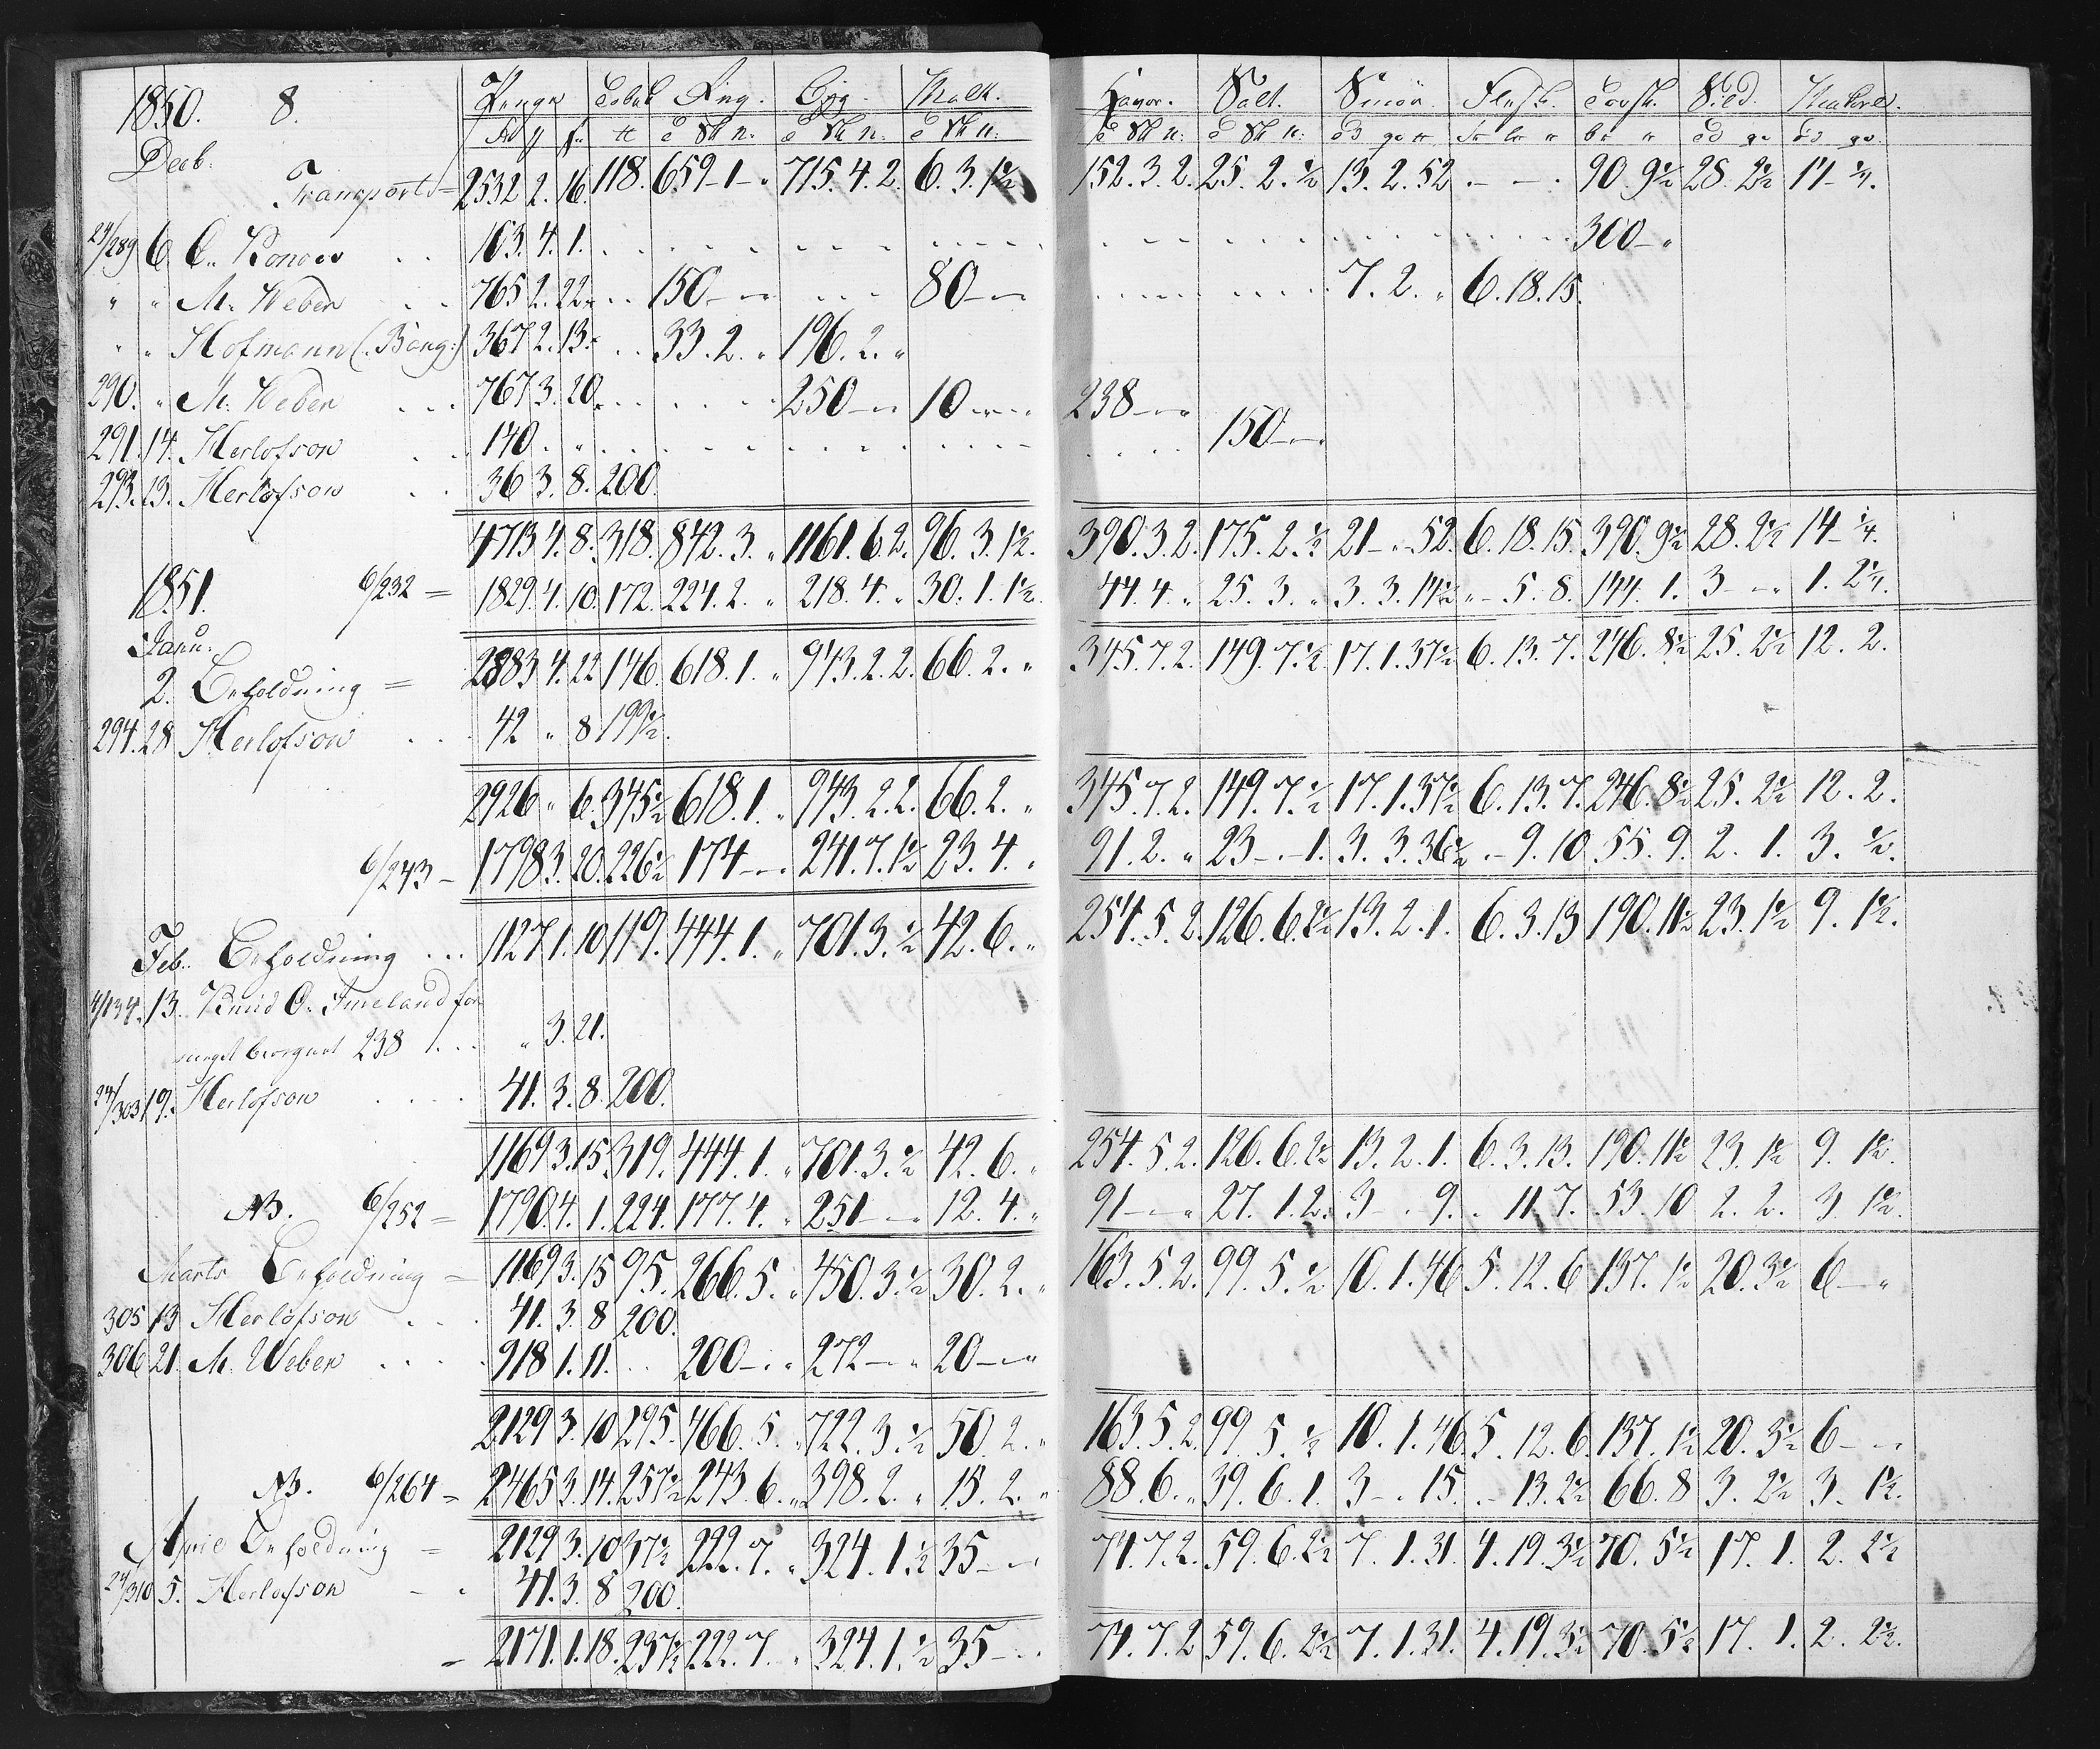 1850. 8. Penge Tobak Rug. Byg. Malt. Havre. Salt. Smør. Flesk. Torsk. Sild. Makrel.
Decb:
Transport = 2532 2. 16. 118. 659-1-„ 715. 4. 2. 6. 3. 1½ 152. 3. 2. 25. 2. ½ 13. 2. 52 . - - . 90. 9½ 28. 2½ 14-¼.
24/289 6. C. Ronoes . . 103. 4. 1. 300-„
„ „ M. Weber . . 765 2. 22. 150-„„ 80-„„ 7. 2. „ 6. 18. 15.
„ „ Hofmann (:Bang:) 367 2. 13. 33. 2. „ 196. 2. „
290. „ M. Weber . . . 767 3. 20. 250-„„ 10-„„ 238-„„
291. 14. Herlofson . . 140. „ „ 150-„„
293. 13. Herlofson . . 36 3. 8. 200.
4713 4. 8. 318. 842. 3. „ 1161. 6. 2. 96. 3. 1½. 390. 3. 2. 175. 2. ½ 21-„-52. 6. 18. 15. 390. 9½ 28. 2½ 14-¼.
1851. 6/232 = 1829. 4. 10. 172. 224. 2. „ 218. 4. „ 30. 1. 1½. 44. 4. „ 25. 3. „ 3. 3. 14½ „- 5. 8. 144. 1. 3-„„ 1. 2¼.
Janu:
2. Beholdning = 2883 4. 22 146. 618. 1. „ 943. 2. 2. 66. 2. „ 345. 7. 2. 149. 7. ½. 17. 1. 37½ 6. 13. 7. 246. 8½ 25. 2½ 12. 2.
294. 28 Herlofson . . . 42 „ 8 199½.
2926 „ 6. 345½ 618. 1. „ 943. 2 2. 66. 2. „ 345. 7. 2. 149. 7. ½ 17. 1. 37½ 6. 13. 7. 246. 8½ 25. 2½ 12. 2.
6/243 - 1798 3. 20. 226½ 174-„„ 241. 7. 1½ 23. 4. „ 91. 2. „ 23-„-1. 3. 3. 36½ „- 9. 10 55. 9. 2. 1. 3. ½.
Feb. Beholdning . . . 1127 1. 10 119. 444. 1. „ 701. 3. ½ 42. 6. „ 254. 5. 2. 126. 6. 2½ 13. 2. 1. 6. 3. 13 190. 11½ 23. 1½ 9. 1½.
4/134. 13. Knud O. Imeland for
meget beregnet 238 . . . „ 3. 21.
24/303 19. Herlofson . . . . 41. 3. 8. 200.
1169 3. 15 319. 444. 1. „ 701. 3. ½ 42. 6. „ 254. 5 2. 126. 6. 2½ 13. 2. 1. 6. 3. 13. 190. 11½ 23. 1½ 9. 1½.
NB. 6/252 = 1790. 4. 1. 224. 177. 4. „ 251-„„ 12. 4. „ 91-„„ 27. 1. 2. 3- „ 9. „ 11 7. 53. 10 2. 2. 3. 1½.
Marts Beholdning = 1169 3. 15 95. 266. 5. „ 450. 3. ½ 30. 2. „ 163. 5. 2. 99. 5. ½ 10. 1. 46 5. 12. 6 137. 1½ 20. 3½ 6-„
305 13 Herlofson . . . 41. 3. 8 200.
306 21. M. Weber . . . . 918 1. 11. . . 200-„„ 272-„„ 20-„„
2129 3. 10 295. 466. 5. „ 722. 3. ½ 50. 2. „ 163. 5. 2. 99. 5. ½ 10. 1. 46 5. 12. 6. 137. 1½ 20. 3½ 6-„„
NB. 6/264 = 2465 3. 14. 257½ 243. 6. „ 398. 2. „ 15. 2. „ 88. 6. „ 39. 6. 1. 3-„ 15. „- 13. 2½ 66. 8 3. 2½ 3. 1½.
April Beholdning = 2129 3. 10 37½ 222. 7. „ 324. 1. ½ 35-„„ 74. 7. 2. 59. 6. 2½ 7. 1. 31. 4. 19. 3½ 70. 5½ 17. 1. 2. 2½
24/310 5. Herlofson - . 41. 3. 8 200.
= 2171. 1. 18. 237½ 222. 7. „ 324. 1. ½ 35-„„ 74. 7. 2 59. 6. 2½ 7. 1. 31. 4. 19. 3½ 70. 5½ 17. 1. 2. 2½.